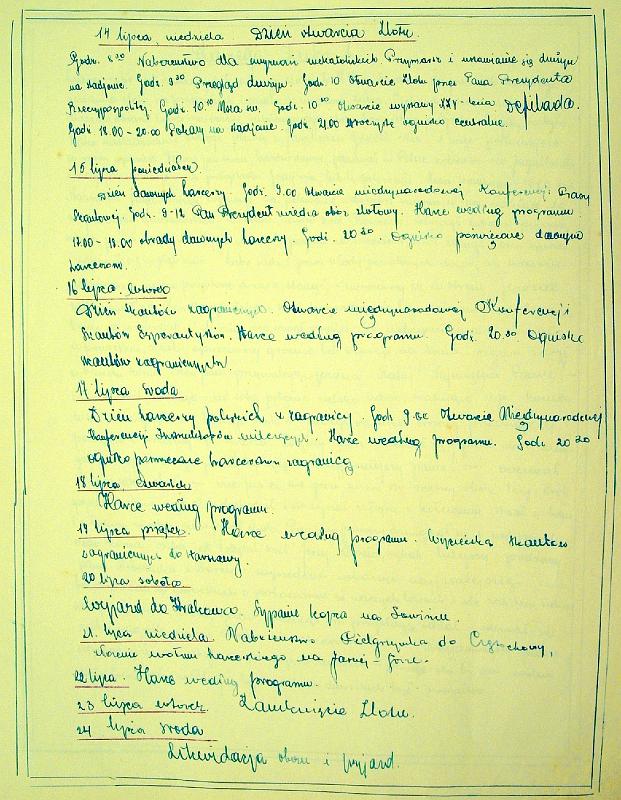 14 lipca, niedziela Dzień otwarcia Zlotu.
Godz. 8 30 Nabożeństwo dla wyznań niekatolickich Przymarsz i ustawianie się drużyn
na stadjonie. Godz. 9 30 Przegląd drużyn. Godz. 10 Otwarcie Zlotu przez Pana Prezydenta
Rzeczypospolitej. Godz. 10.10 Msza św. Godz. 10 50 Otwarcie wystawy XXV-lecia Defilada.
Godz. 18.00 - 20.00 Pokazy na stadjonie. Godz. 21.00 Uroczyste ognisko centralne.
15 lipca poniedziałek
Dzień dawnych harcerzy. Godz. 9.00 Otwarcie międzynarodowej Konferencji Prasy
Skautowej. Godz. 9-12 Pan Prezydent zwiedza obóz zlotowy. Harce według programu
17.00 - 18.00 obrady dawnych harcerzy. Godz. 20 30. Ognisko poświęcone dawnym
harcerzom.
16 lipca, wtorek
Dzień skautów zagranicznych. Otwarcie międzynarodowej Konferencji
Skautów Esperantystów. Harce według programu. Godz. 20.30 Ognisko
skautów zagranicznych.
17 lipca środa
Dzień harcerzy polskich z zagranicy. Godz 9.00 Otwarcie Międzynarodowej
Konferencji Harce według programu. Godz. 20 30
ognisko poświęcone harcerstwu zagranicą
18 lipca, czwartek
Harce według programu.
19 lipca piątek. Harce według programu. Wycieczka skautów
zagranicznych do Warszawy.
20 lipca sobota.
Wyjazd do Krakowa. Sypanie kopca na Sowińcu.
21. lipca niedziela Nabożeństwo Pielgrzymka do Częstochowy,
złożenie wotum harcerskiego na Jasnej-Górze.
22 lipca. Harce według programu.
23 lipca wtorek. Zamknięcie Zlotu.
24 lipca środa
Likwidacja obozu i wyjazd.